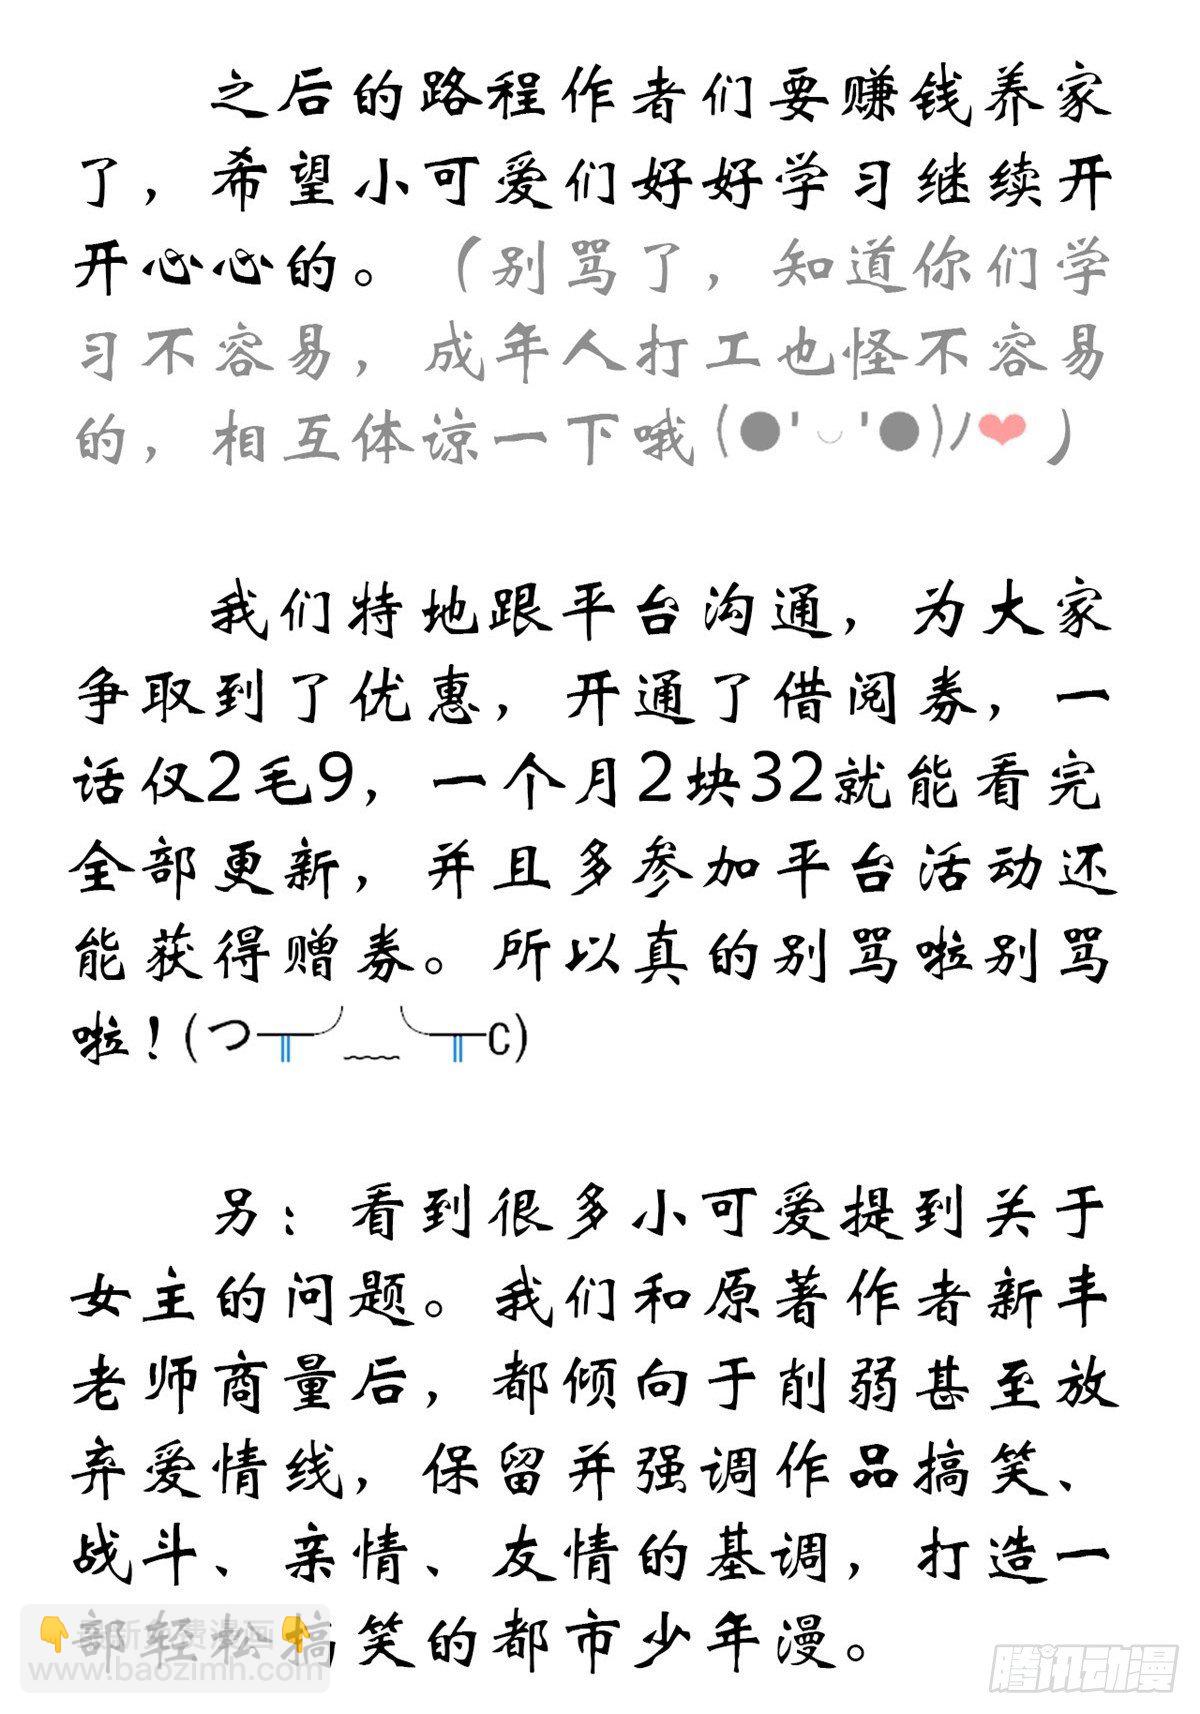 之后的路程作者们要赚钱养家
了，希望小可爱们好好学习继续开
开心心的。（别骂了，知道你们学
习不容易，成年人打工也怪不容易
的，相互体谅一下哦(●'◡'●)/❤）
我们特地跟平台沟通，为大家
争取到了优惠，开通了借阅券，一
话仅2毛9，一个月2块32就能看完
全部更新，并且多参加平台活动还
能获得赠券。所以真的别骂啦别骂
啦！(つ╥﹏╥c)
另：看到很多小可爱提到关于
女主的问题。我们和原著作者新丰
老师商量后，都倾向于削弱甚至放
弃爱情线，保留并强调作品搞笑、
战斗、亲情、友情的基调，打造一
部轻松搞笑的都市少年漫。
www.baozimh.com
腾讯动漫